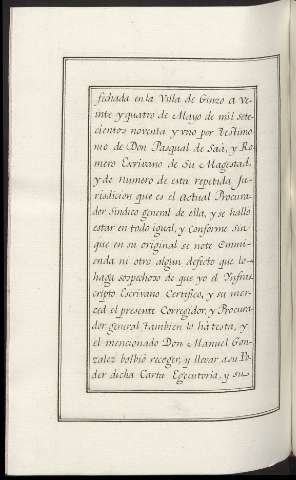 fechada en la Villa de Ginzo a Ve-
inte y quatro de Mayo de mil sete-
cientos noventa y vno por Testimo
nio de Don Pasqual de Saà, y Ro
mero Escrivano de Su Magestad,
y de numero de esta repetida Ju-
risdicion que es el actual Procura-
dor Sindico general de ella, y se hallo
estar en todo igual, y Conforme sin
que en su original se note Enmi-
enda ni otro algun defecto que lo
haga sospechoso de que yo el Ynfras
cripto Escrivano Certifico, y su mer-
ced el presente Corregidor, y Procura-
dor general tambien lo hà testa, y
el mencionado Don Manuel Gon-
zalez bolbiò recoger, y llevar a su Po-
der dicha Carta Egecutoria, y su